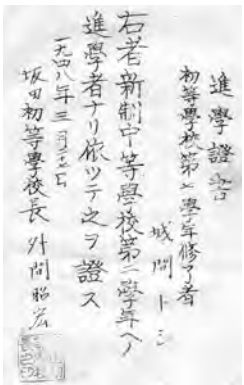 進學證書
初等學校第七學年修了者
城間トシ
右者新制中等學校第二學年ヘノ
進學者ナリ依ツテ之ヲ證ス
一九四八年三月 日
坂田初等學校長 外間昭宏